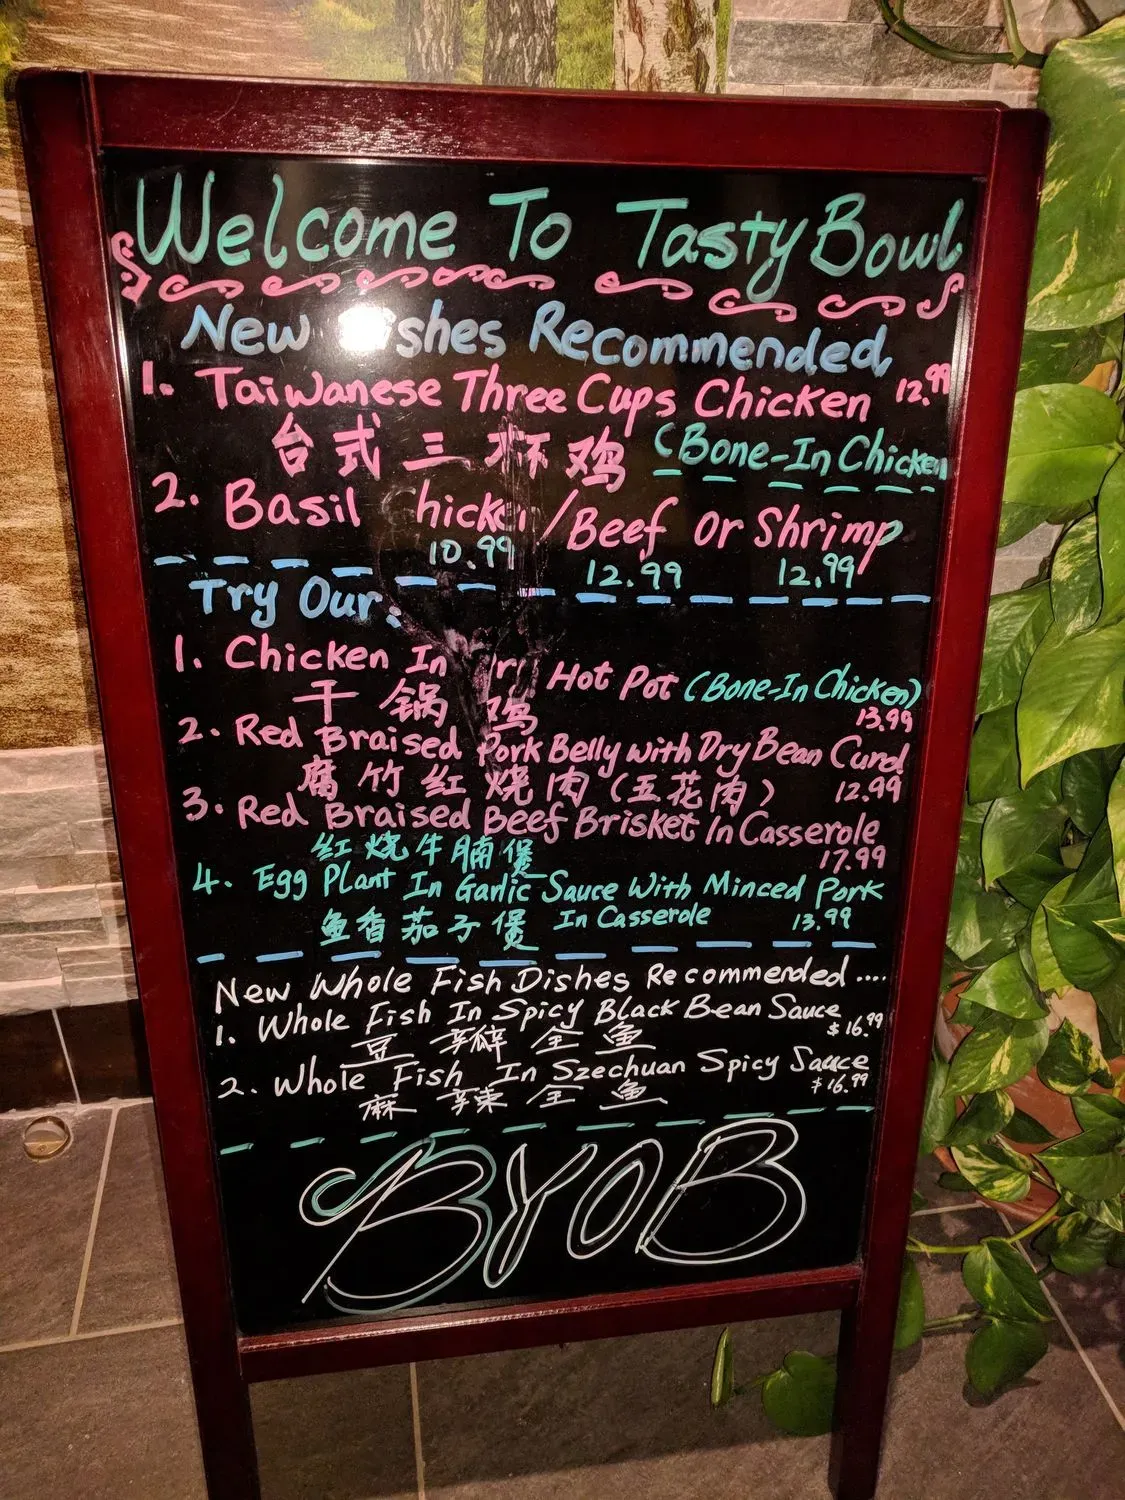 Welcome To Tasty Bowl
New Recommended
1. Taiwanese Three Cups Chicken 12.99
台式三杯鸡 (Bone-In Chicken
2. Basil /Beef Or Shrimp
10.99 12.99 12.99
Try Our:
1. Chicken In Hot Pot (Bone-In Chicken)
干锅鸡 13.99
2. Red Braised Pork Belly with Dry Bean Curd
腐竹红烧肉(五花肉) 12.99
3. Red Braised Beef Brisket In Casserole
红烧牛腩煲 17.99
4. Egg Plant In Garlic Sauce With Minced Pork
鱼香茄子煲 In Casserole 13.99
New Whole Fish Dishes Recommended....
1. Whole Fish In Spicy Black Bean Sauce
豆 全鱼 $16.99
2. Whole Fish In Szechuan Spicy Sauce
麻辣全鱼 $16.99
BYOB